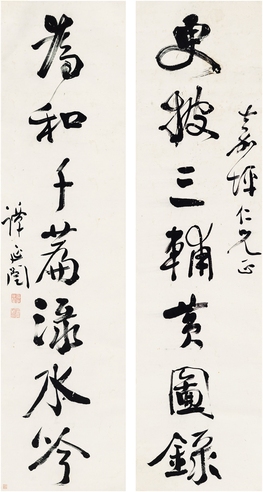 嘉坪仁兄正
更披三輔黃圖錄
為和千篇淥水吟
譚延闓